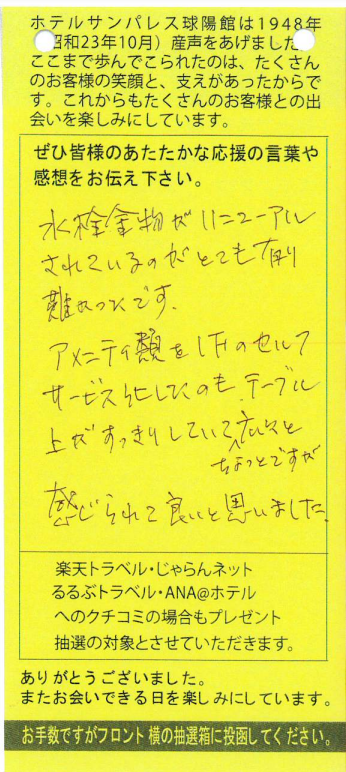 ホテルサンパレス球陽館は1948年
昭和23年10月）産声をあげました
ここまで歩んでこられたのは、たくさん
のお客様の笑顔と、支えがあったからで
す。これからもたくさんのお客様との出
会いを楽しみにしています。
ぜひ皆様のあたたかな応援の言葉や
感想をお伝え下さい。
水栓金物がリニューアル
されているのがとても有り
難かったです。
アメニティ類を1Fのセルフ
サービス化したのも、テーブル
上がすっきりしていて広々と
ちょっとですが
感じられて良いと思いました。
楽天トラベル・じゃらんネット
るるぶトラベル・ANA@ホテル
へのクチコミの場合もプレゼント
抽選の対象とさせていただきます。
ありがとうございました。
またお会いできる日を楽しみにしています。
お手数ですがフロント横の抽選箱に投函してください。